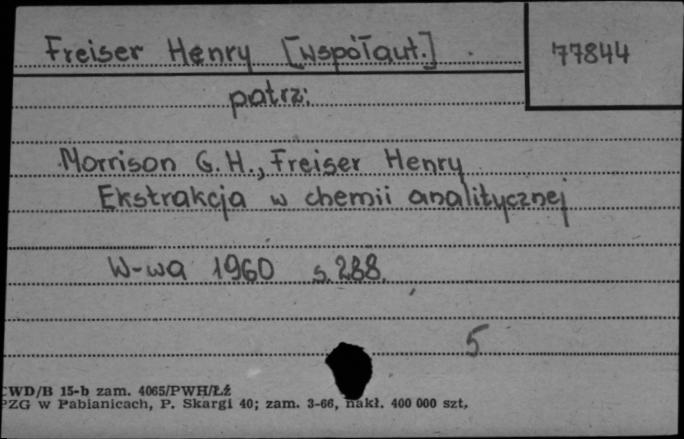 Freiser Henry [współaut.]
77844
patrz:
Morrison G. H., Freiser Henry
Ekstrakcja w chemii analitycznej
W-wa 1960 s. 288.
5
CWD/B 15-b zam. 4065/PWH/Łź
PZG w Pabianicach, P. Skargi 40; zam. 3-66, nakł. 400 000 szt.